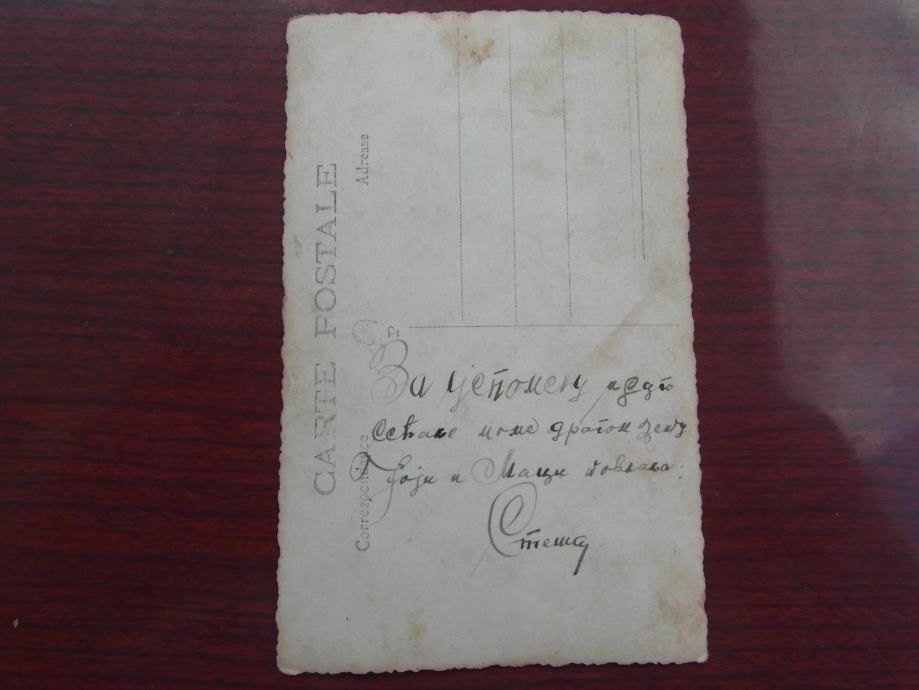 CARTE POSTALE
Correspondance
Adresse
За успомену и дуго
сећање моме драгом зету
и Маци
Стеша